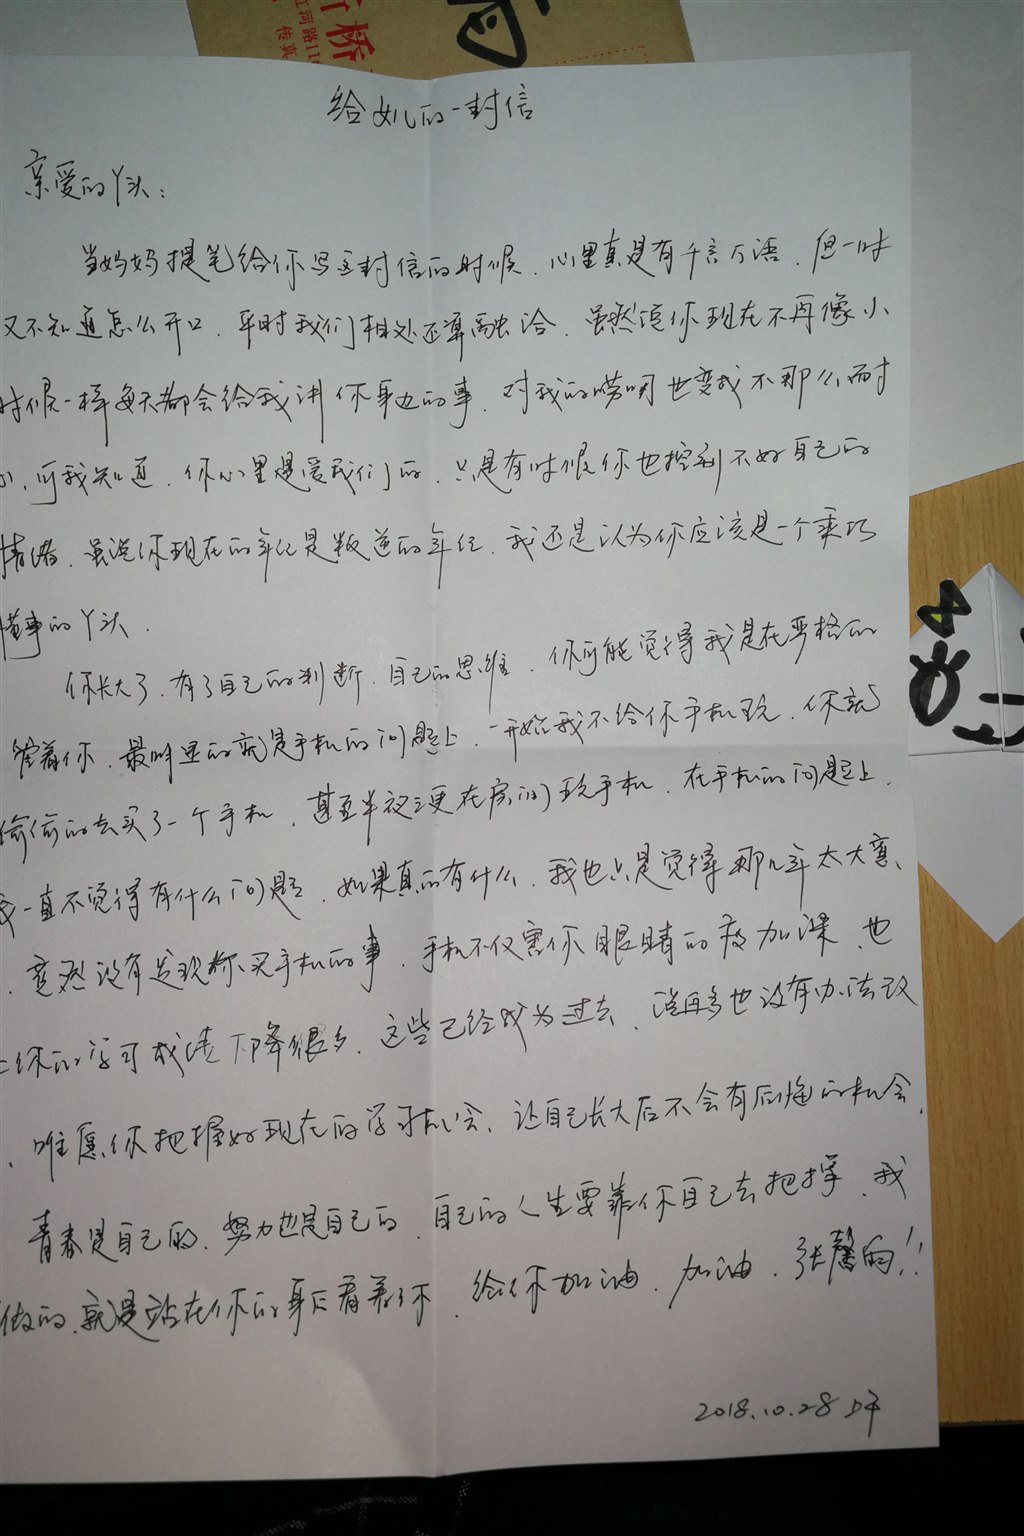 行桥
江河路11
传真
给女儿的一封信
亲爱的丫头：
当妈妈提笔给你写这封信的时候，心里真是有千言万语，但一时
又不知道怎么开口，平时我们相处还算融洽，虽然说你现在不再像小
时候一样每天都会给我讲你身边的事，对我的唠叨也变成不那么耐
心，可我知道，你心里是爱我们的，只是有时候你也控制不好自己的
情绪，虽说你现在的年纪是叛逆的年纪，我还是认为你应该是一个乖巧
懂事的丫头．
你长大了，有了自己的判断，自己的思维，你可能觉得我是在严格的
管着你，最明显的就是手机的问题上，一开始我不给你手机玩，你就
偷偷的去买了一个手机，甚至半夜三更在房间玩手机，在手机的问题上，
我一直不觉得有什么问题，如果真的有什么，我也只是觉得那几年太大意、
，竟然没有发现你买手机的事，手机不仅害你眼睛的度加深，也
让你的学习成绩下降很多，这些已经成为过去，说再多也没有办法改
，唯愿你把握好现在的学习机会，让自己长大后不会有后悔的机会，
青春是自己的，努力也是自己的，自己的人生要靠你自己去把握，我
做的，就是站在你的身后看着你，给你加油，加油，张馨
2018.10.28